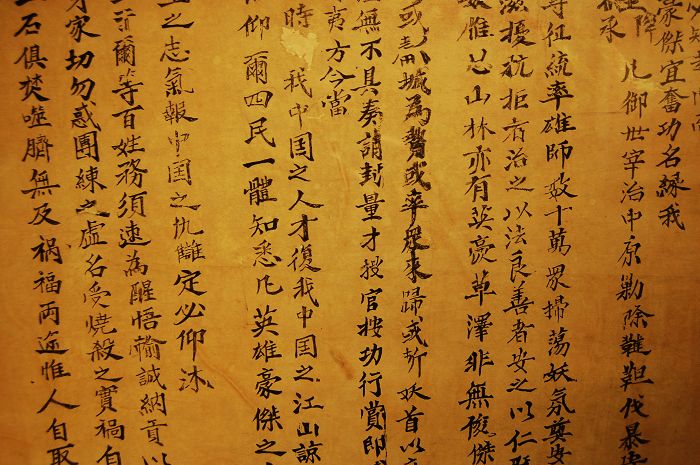 豪傑宜奮功名緣我
凡御世宰治中原勦除韃靼伐暴
承
征統率雄師数十萬眾掃蕩妖氛奠安
滋擾抗拒者治之以法良善者安之以仁
惟怂山林亦有英豪草澤非無俊傑
或献城為贄或率眾來歸或斬妖首以
無不具奏請封量才授官按功行賞即
夷方今當
時 我中囯之人才復我中囯之江山諒
仰爾四民一體知悉凡英雄豪傑之
之志氣報中囯之仇讐定必仰沐
爾等百姓務須速為醒悟輸誠納貢以
才家切勿惑團練之虛名受燒殺之實禍自
石俱焚噬臍無及禍福両途惟人自取